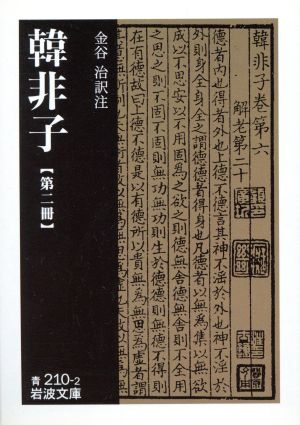 韓非子
【第二冊】
金谷 治訳注
韓非子卷第六
解老第二十
德者内也得者外也上德不德言其神不淫於外也神不淫於
外則身全身全之謂德德者得身也凡德者以無為集以無欲
成以不思安以不用固為之欲之則德無舍德無舍則不全用之
思之則不固不固則無功無功則生於德德則無德不德則
在有德故曰上德不德是以有德所以貴無為無思為虛者謂
青 210-2
岩波文庫